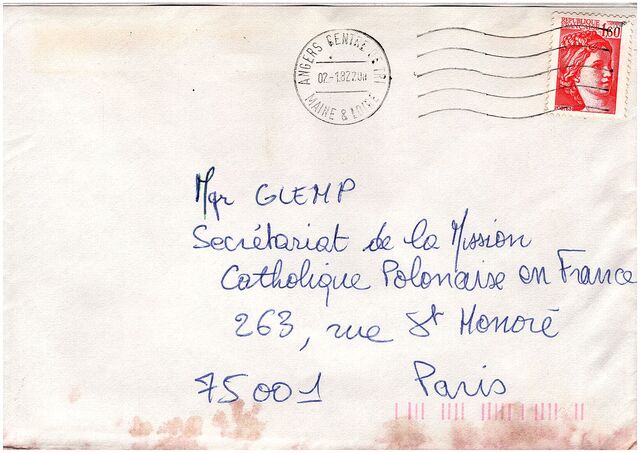 ANGERS CENTRE TRI
02-1.82 20H
MAINE & LOIRE
REPUBLIQUE
FRANCAISE
1,60
Mgr GLEMP
Secrétariat de la Mission
Catholique Polonaise en France
263, rue St Honoré
75001 Paris